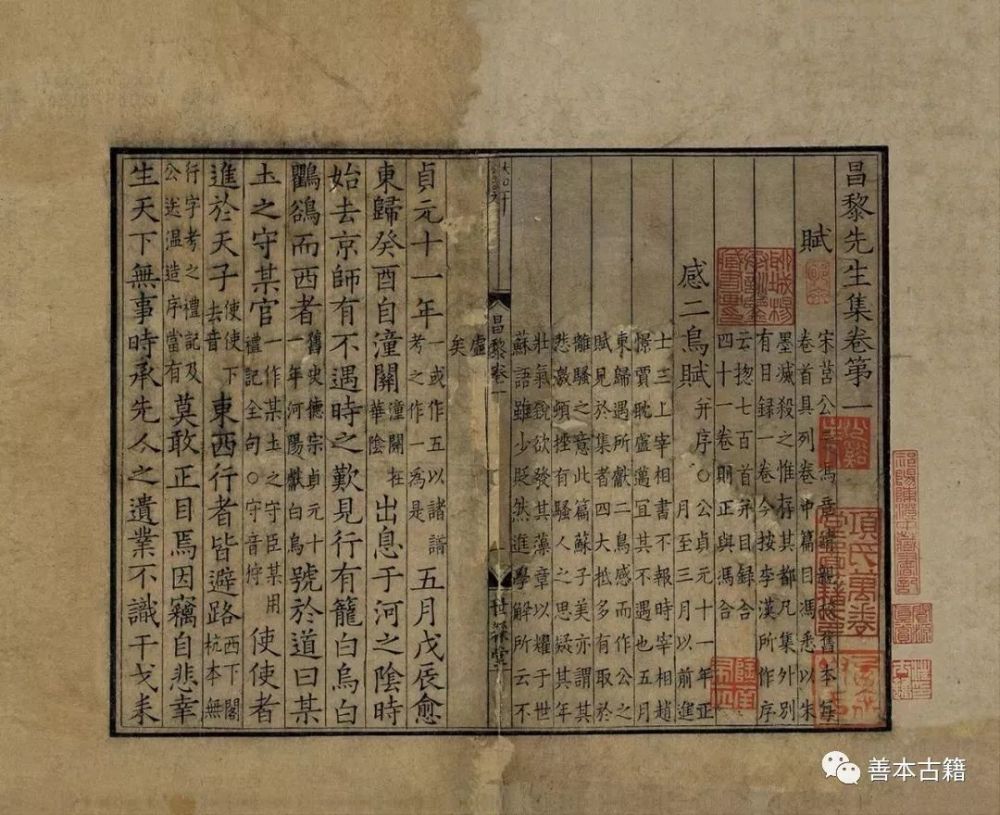 昌黎先生集卷第一
賦
宋莒公云馮章靖親校舊本每
卷首具列卷中篇目馮悉以朱
墨滅殺之惟存其都凡集外別
有目録一卷今按李漢所作序
云揔七百首并目録合
四十一卷則正與馮合
感二鳥賦
并序○公貞元十一年正
月至三月以前進
士三上宰相書不報時宰相趙
憬賈耽盧邁宜其不遇也五月
東歸遇所獻二鳥感而作公之
賦見於集者四大抵多有取於
離騷之意此篇蘇子美亦謂其
悲激頓挫有騷人之思疑其年
壯氣銳欲發其藻章以耀于世
蘇語雖少貶然進學解所云不
虛
矣
昌黎卷一
世綵堂
貞元十一年一或作五以諸譜考之作一為是五月戊辰愈
東歸癸酉自潼關潼關在華陰出息于河之陰時
始去京師有不遇時之歎見行有籠白烏白
鸜鵒而西者舊史德宗貞元十一年河陽獻白烏號於道曰某
土之守某官一作某土之守臣某用禮記全句○守音狩使使者
進於天子使使下去音東西行者皆避路西下閣杭本無
行字考之禮記及公送温造序當有莫敢正目焉因竊自悲幸
生天下無事時承先人之遺業不識干戈耒
項氏萬卷堂圖籍印
善本古籍